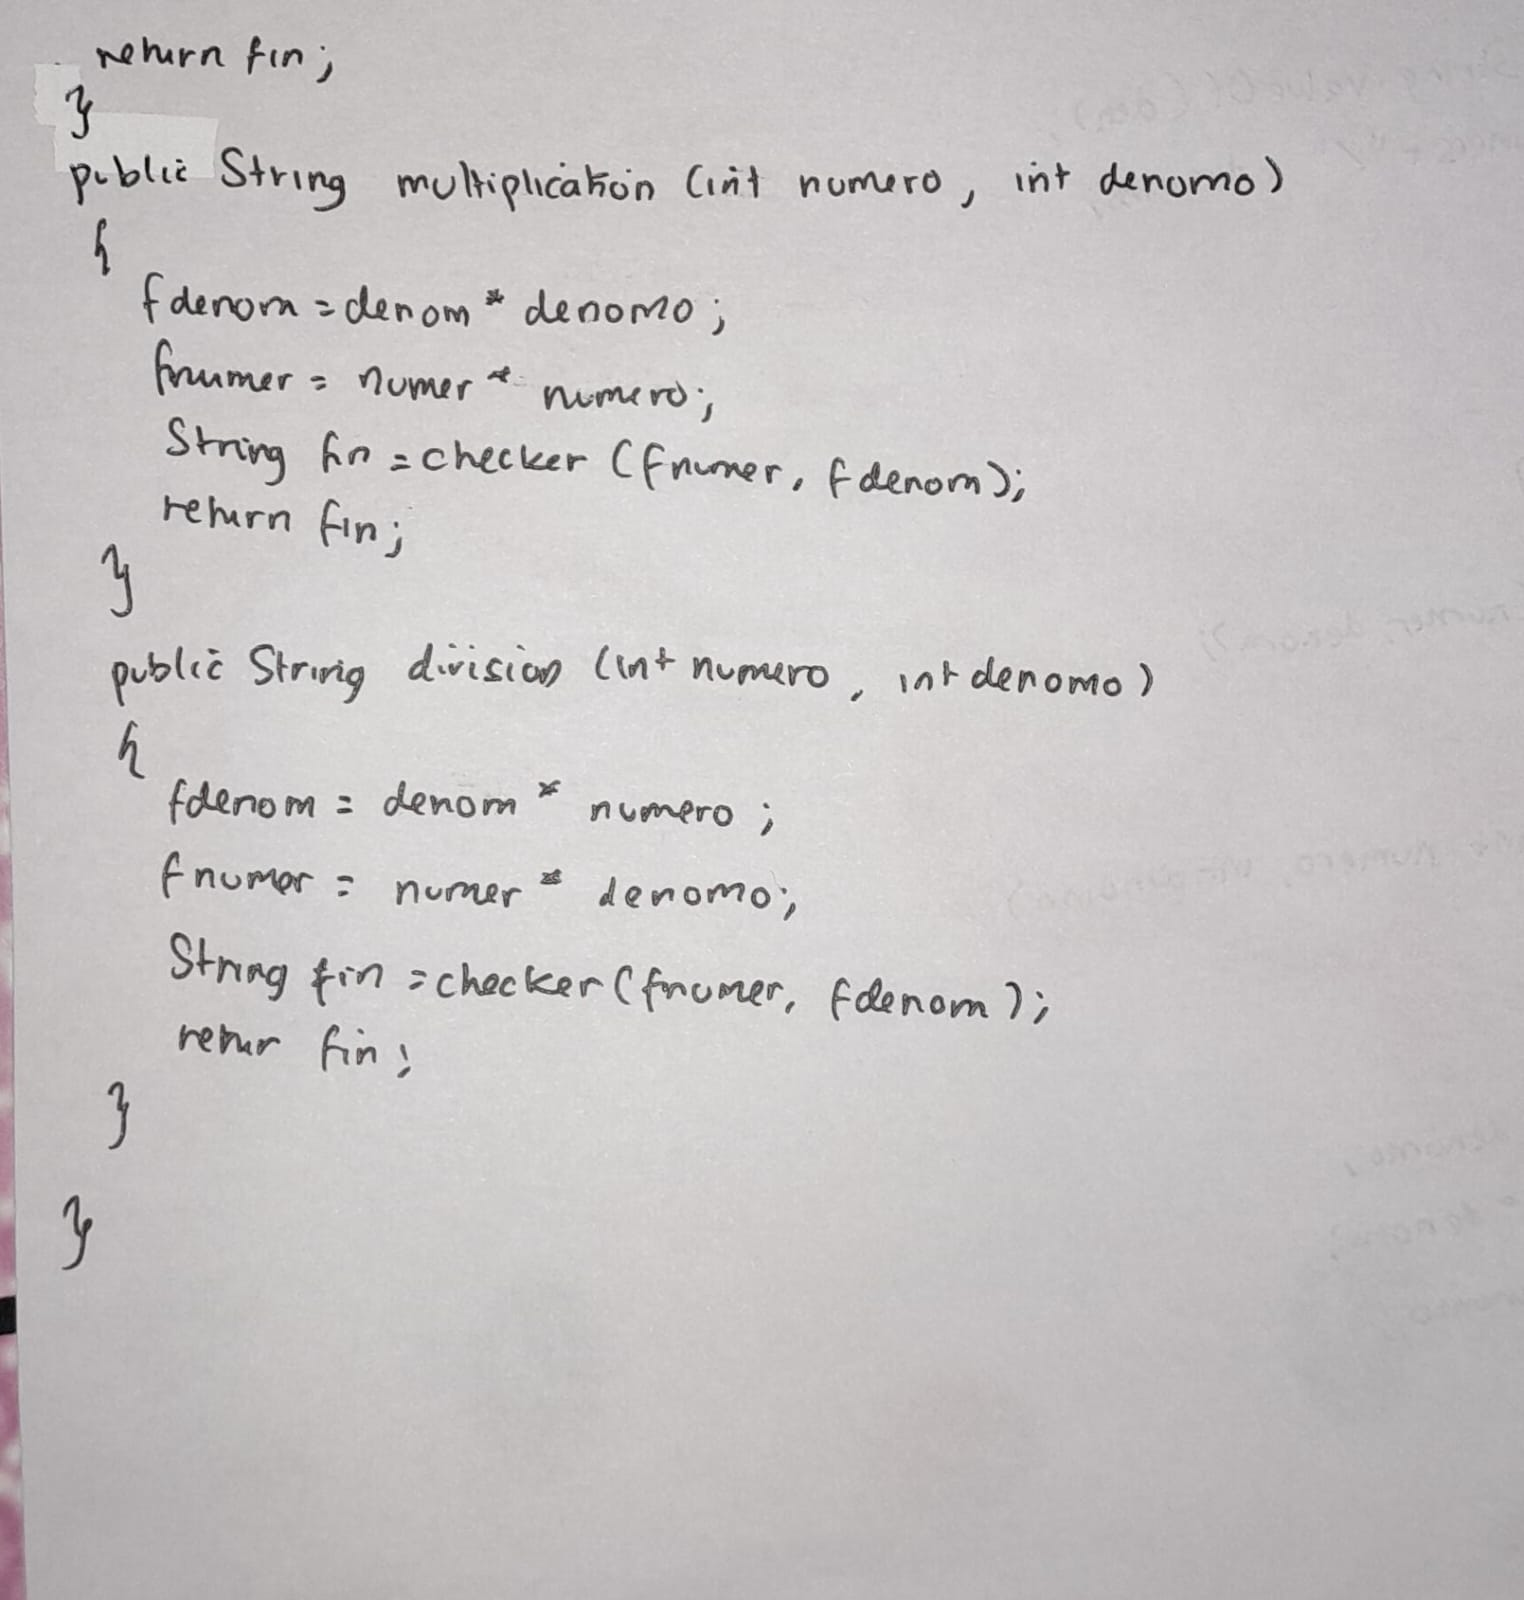 return fin;
}
public String multiplication (int numero, int denomo)
{
fdenom = denom * denomo;
fnumer = numer * numero;
String fin = checker (fnumer, fdenom);
return fin;
}
public String division (int numero, int denomo)
{
fdenom = denom * numero;
fnumer = numer * denomo;
String fin = checker (fnumer, fdenom);
retur fin;
}
}